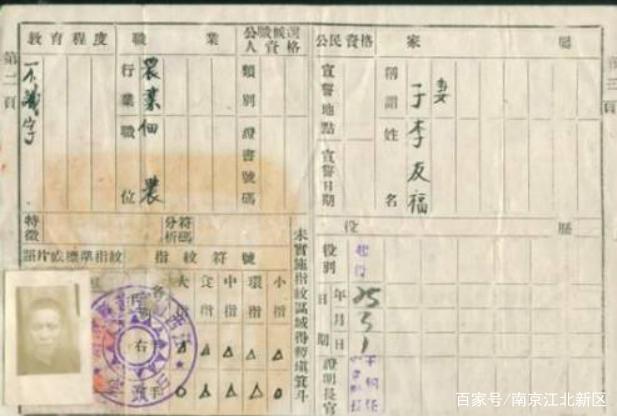 第二頁
教育程度
不識字
職業
行業
農業
職位
佃農
公職候選人資格
類別
證書號碼
特徵
符碼分析
照片或標準指紋
指紋符號
大指
食指
中指
環指
小指
右
未實施指紋區域得暫填箕斗
第三頁
公民資格
宣誓地點
宣誓日期
家屬
稱謂
妻
子
姓名
李友福
役歷
役別
年月日期
25
5
1
證明長官
百家号/南京江北新区